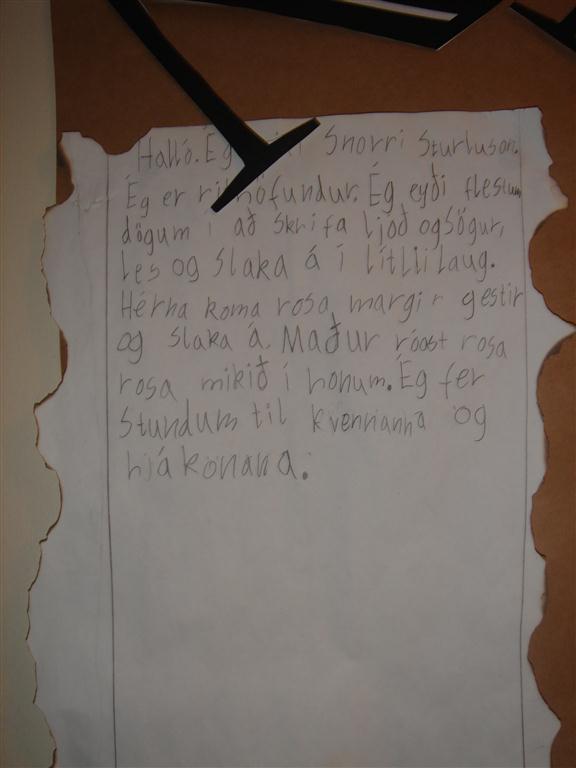 Halló. Ég Snorri Sturluson.
Ég er rithöfundur. Ég eyði flestum
dögum í að skrifa ljóð og sögur,
les og slaka á í lítlii laug.
Hérna koma rosa margir gestir
og slaka á. Maður róast rosa
rosa mikið í honum. Ég fer
stundum til kvennanna og
hjákonana.